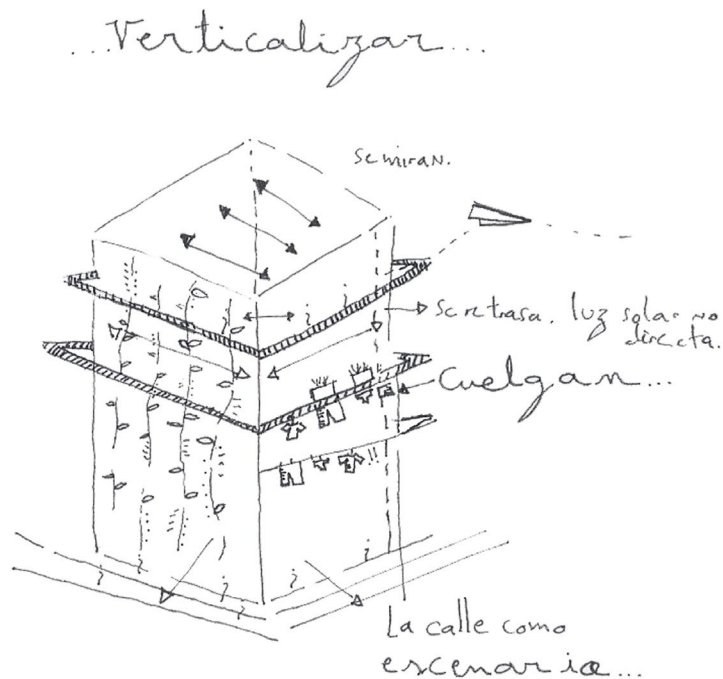 ...Verticalizar...
se miran.
Se retrasa. luz solar no
directa.
Cuelgan...
La calle como
escenario...